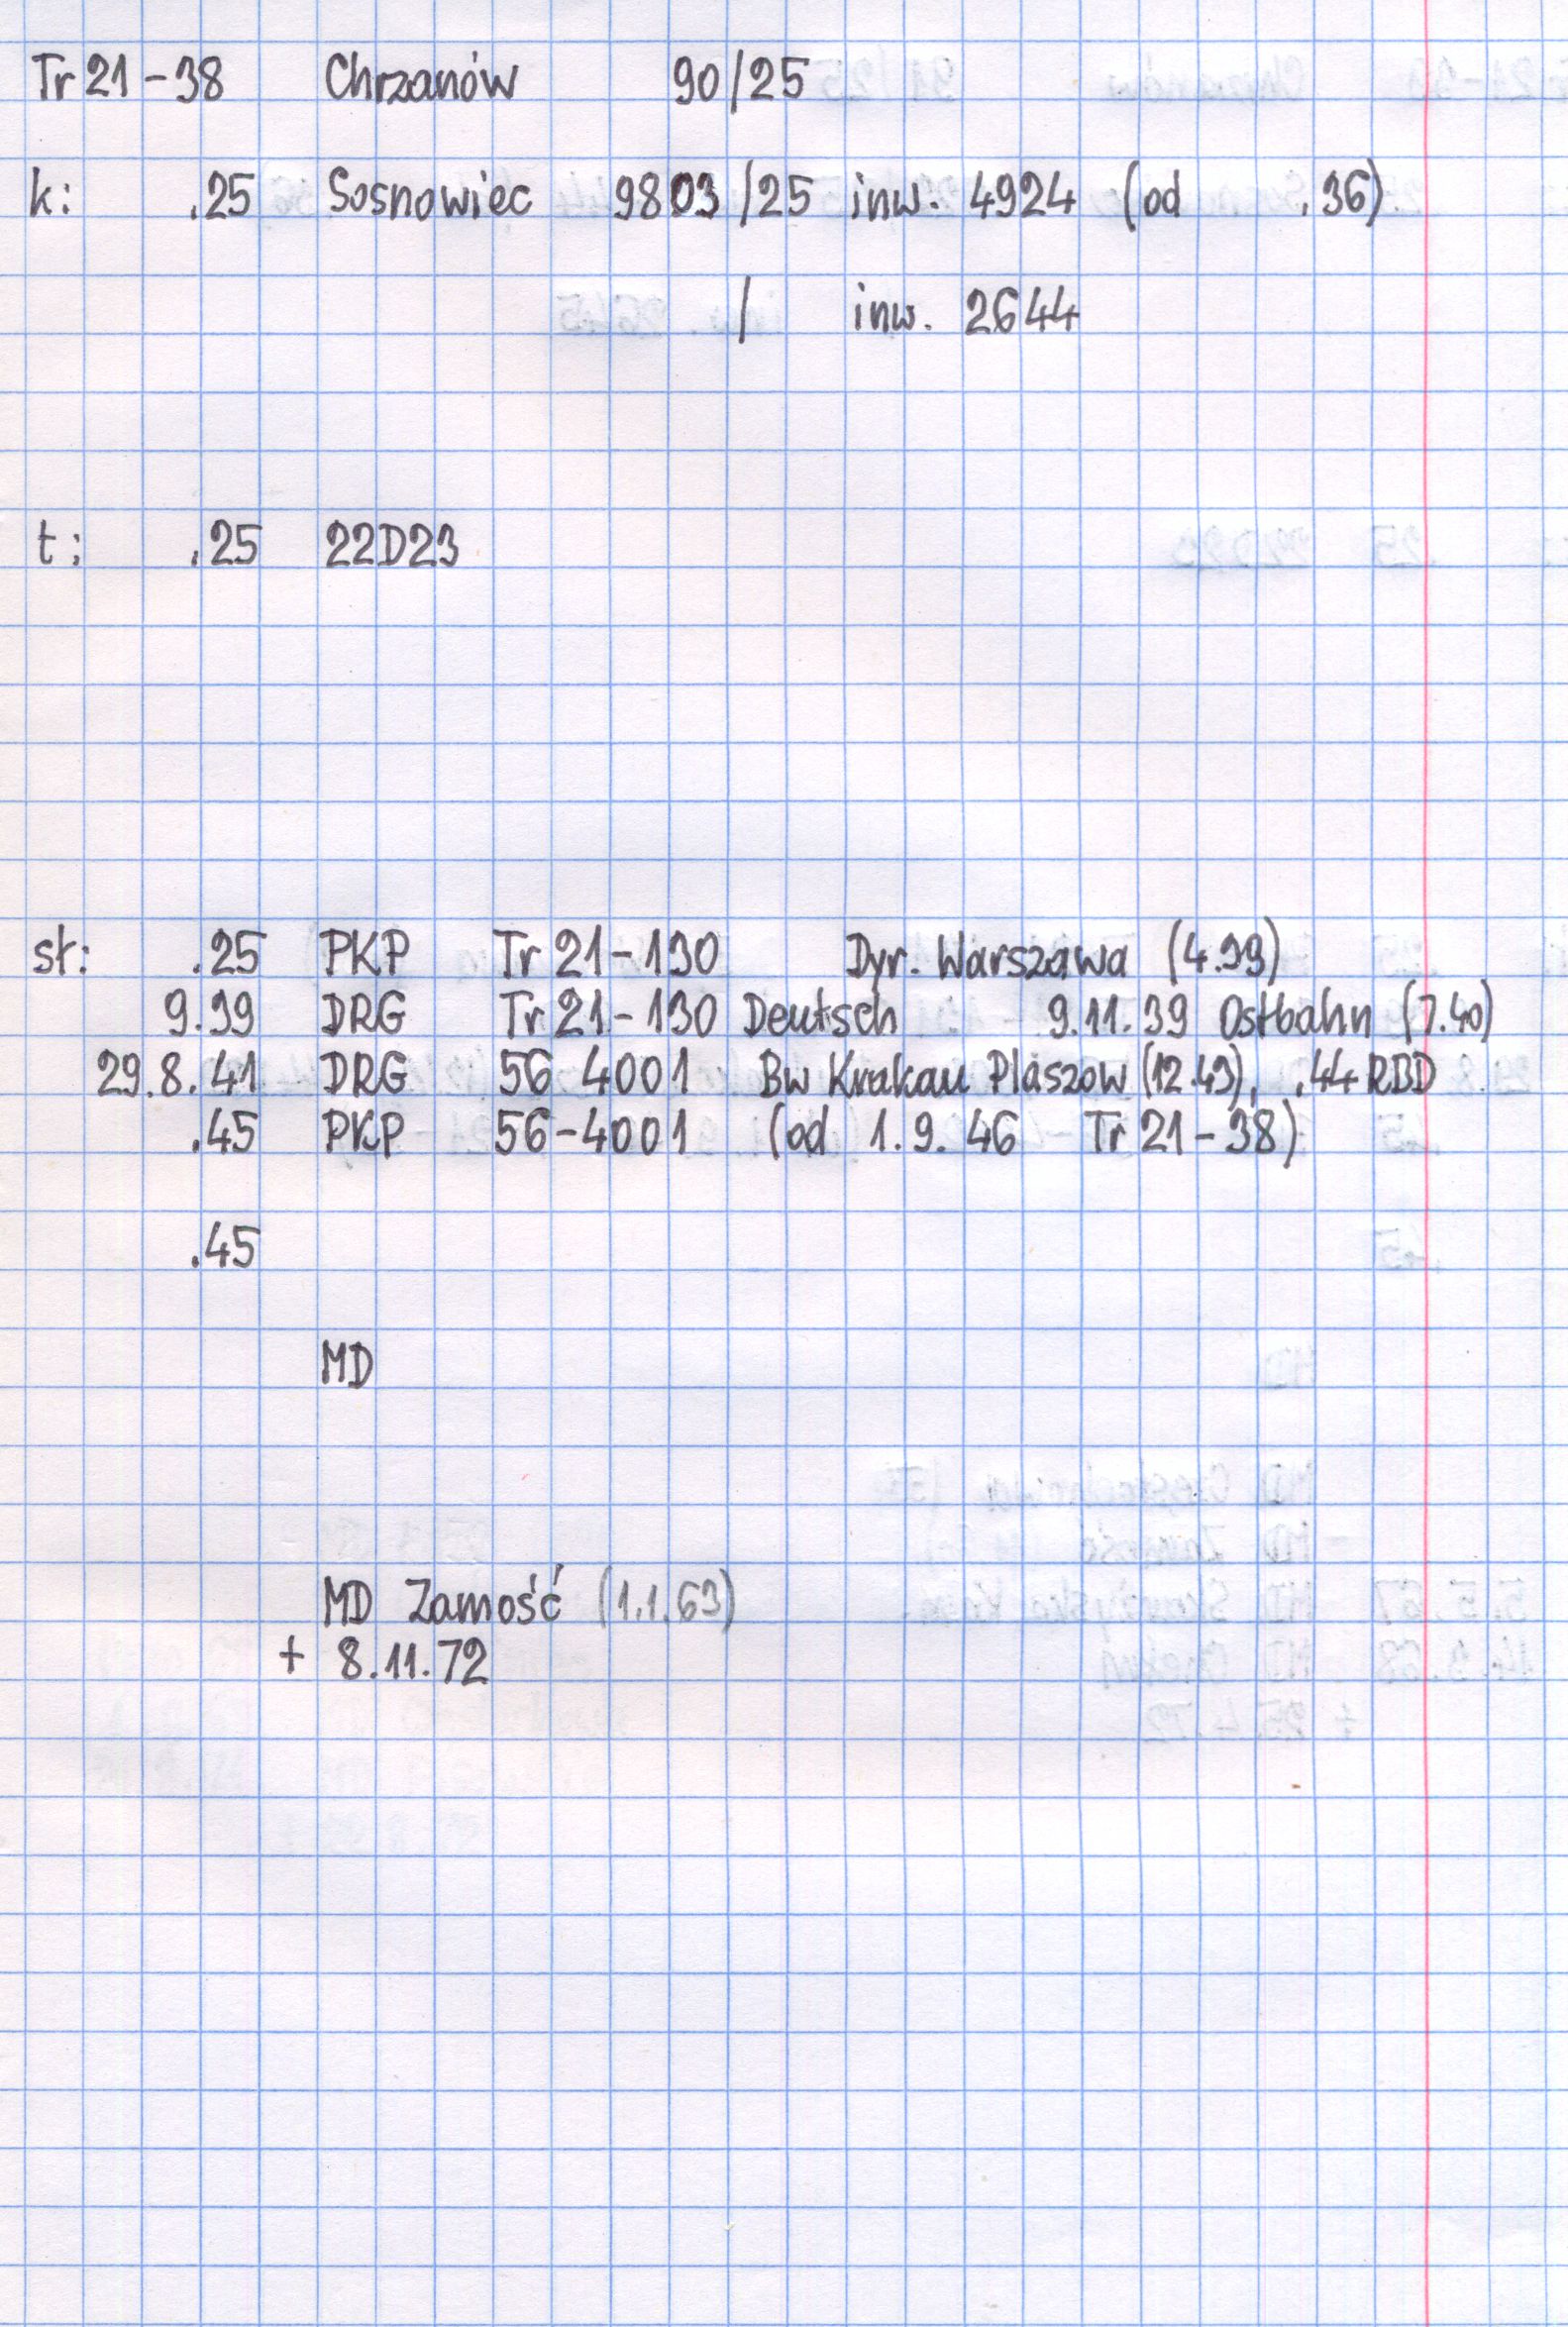 Tr 21-38 Chrzanów 90/25
k: .25 Sosnowiec 9803/25 inw. 4924 (od .36)
/ inw. 2644
t: .25 22D23
sł: .25 PKP Tr 21-130 Dyr. Warszawa (4.39)
9.39 DRG Tr 21-130 Deutsch 9.11.39 Ostbahn (7.40)
29.8.41 DRG 56 4001 Bw Krakau Plaszow (12.43), .44 RBD
.45 PKP 56-4001 (od 1.9.46 Tr 21-38)
.45
MD
MD Zamość (1.1.63)
+ 8.11.72